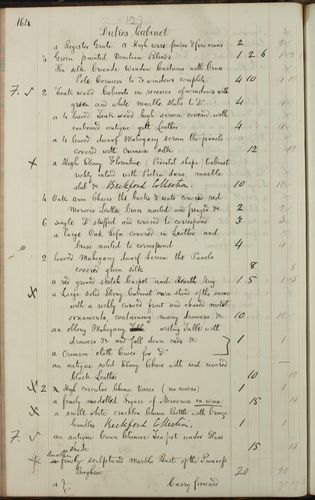 164
Duties Cabinet
a Register Grate a High wire fender & fire irons 2
3 Green painted Venetian Blinds 1 2 6
Pole Cornices to 3 windows complete 4 10
F. 2 Teak wood Cabinets in recesses of windows with
green and white marble slabs to Do 4
a 4 leaved Teak wood high screen covered with
embossed antique gilt Leather 4
a 4 leaved dwarf Mahogany screen the panels
covered with crimson 12
x a High Ebony Florentine (Pedestal shape) Cabinet
richly inlaid with Pietra dura, marble
slab &c Beckford Collection. 10
4 Oak arm Chairs the backs & seats covered red
Morocco Leather brass nailed and fringed &c 2
6 single Do stuffed and covered to correspond 3
a large Oak Sofa covered in Leather and
brass nailed to correspond 4
2 leaved Mahogany dwarf Screen the Panels
covered green silk 8
a red ground sketch Carpet and Hearth Rug 1 5
x a Large solid Ebony Cabinet on a stand of the same
with a richly carved front and chased metal
ornaments, containing many drawers &c 10
an oblong Mahogany writing Table with
drawers &c and fall down ends &c 1
a Crimson cloth Cover for Do
an antique solid Ebony Chair with seat covered
black Leather 10
x 2 High circular China Vases (no covers) 1
a finely modelled Figure of Minerva in wax 15
x a small white cracklin China Bottle with Bronze
handles Beckford Collection. 1
F. an antique brown Chinese Teapot under Glass
Shade 15
x Another finely sculptured marble Bust of the Princess
Borghese 20
Carry forward